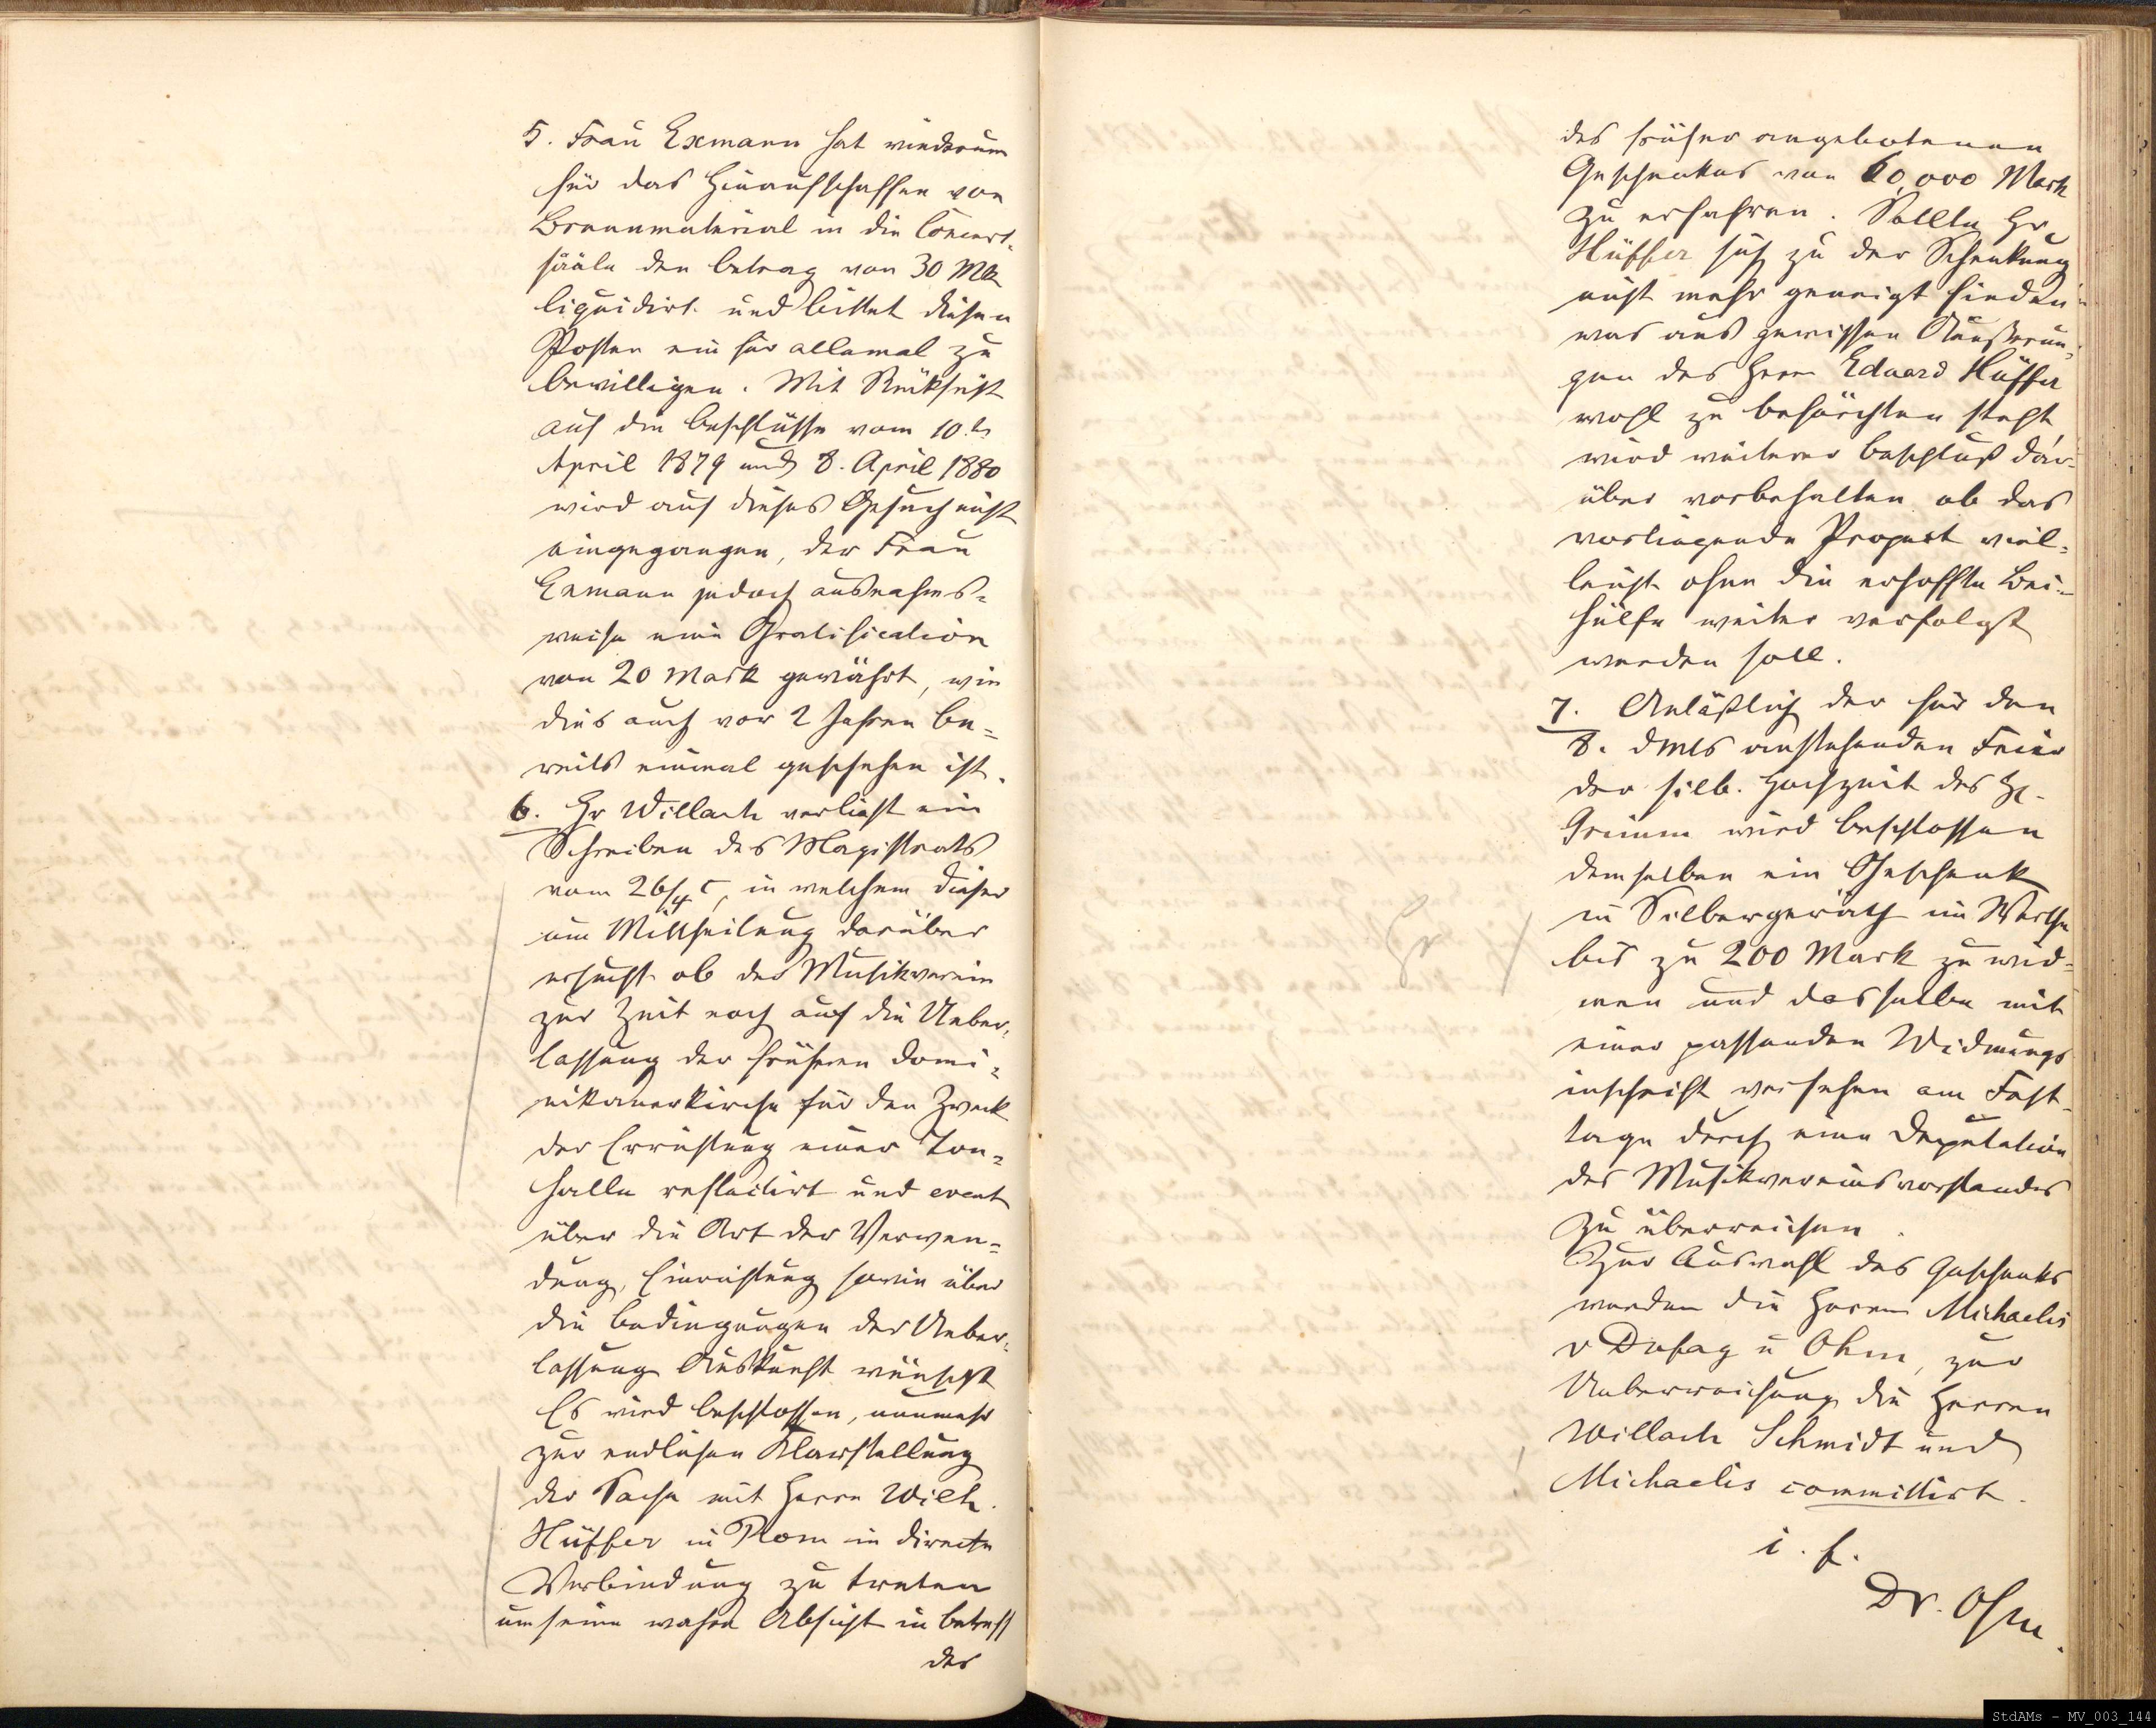 5. Frau Exmann hat wiederum
für das Hinaufschaffen von
Brennmaterial in die Concert-
sääle den Betrag von 30 Mk
liquidirt und bittet diesen
Posten ein für allemal zu
bewilligen. Mit Rücksicht
auf die Beschlüsse vom 10.
April 1879 und 8. April 1880
wird auf dieses Gesuch nicht
eingegangen, der Frau
Exmann jedoch ausnahms-
weise eine Gratification
von 20 Mark gewährt, wie
dies auch vor 2 Jahren be-
reits einmal geschehen ist.
6. Hr Willach verliest ein
Schreiben des Magistrats
vom 26/4 c, in welchem dieser
um Mittheilung darüber
ersucht ob der Musikverein
zur Zeit noch auf die Ueber-
lassung der früheren Domi-
nikanerkirche für den Zweck
der Errichtung einer Ton-
halle reflectirt und event
über die Art der Verwen-
dung, Einrichtung sowie über
die Bedingungen der Ueber-
lassung Auskunft wünscht
Es wird beschlossen, nunmehr
zur endlichen Klarstellung
der Sache mit Herrn Wilh.
Hüffer in Rom in directe
Verbindung zu treten
um seine wahre Absicht in betreff
des
des früher angebotenen
Geschenkes von 60,000 Mark
zu erfahren. Sollte Hr
Hüffer sich zu der Schenkung
nicht mehr geneigt finden
was aus gewissen Aeußerun-
gen des Herrn Eduard Hüffer
wohl zu befürchten steht,
wird weiterer Beschluß dar-
über vorbehalten ob das
vorliegende Project viel-
leicht ohne die erhoffte Bei-
hülfe weiter verfolgt
werden soll.
7. Anläßlich der für den
8. dMts anstehenden Feier
der silb. Hochzeit des H.
Grimm wird beschlossen
demselben ein Geschenk
in Silbergeräth im Werthe
bis zu 200 Mark zu wid-
men und dasselbe mit
einer passenden Widmungs
inschrift versehen am Fest-
tage durch eine Deputation
des Musikvereinsvorstandes
zu überreichen.
Zur Auswahl des Geschenks
werden die Herren Michaelis
v Druffel u Ohm, zur
Ueberreichung die Herren
Willach Schmidt und
Michaelis committirt.
i. f.
Dr. Ohm.
StdAMs - MV_003_144